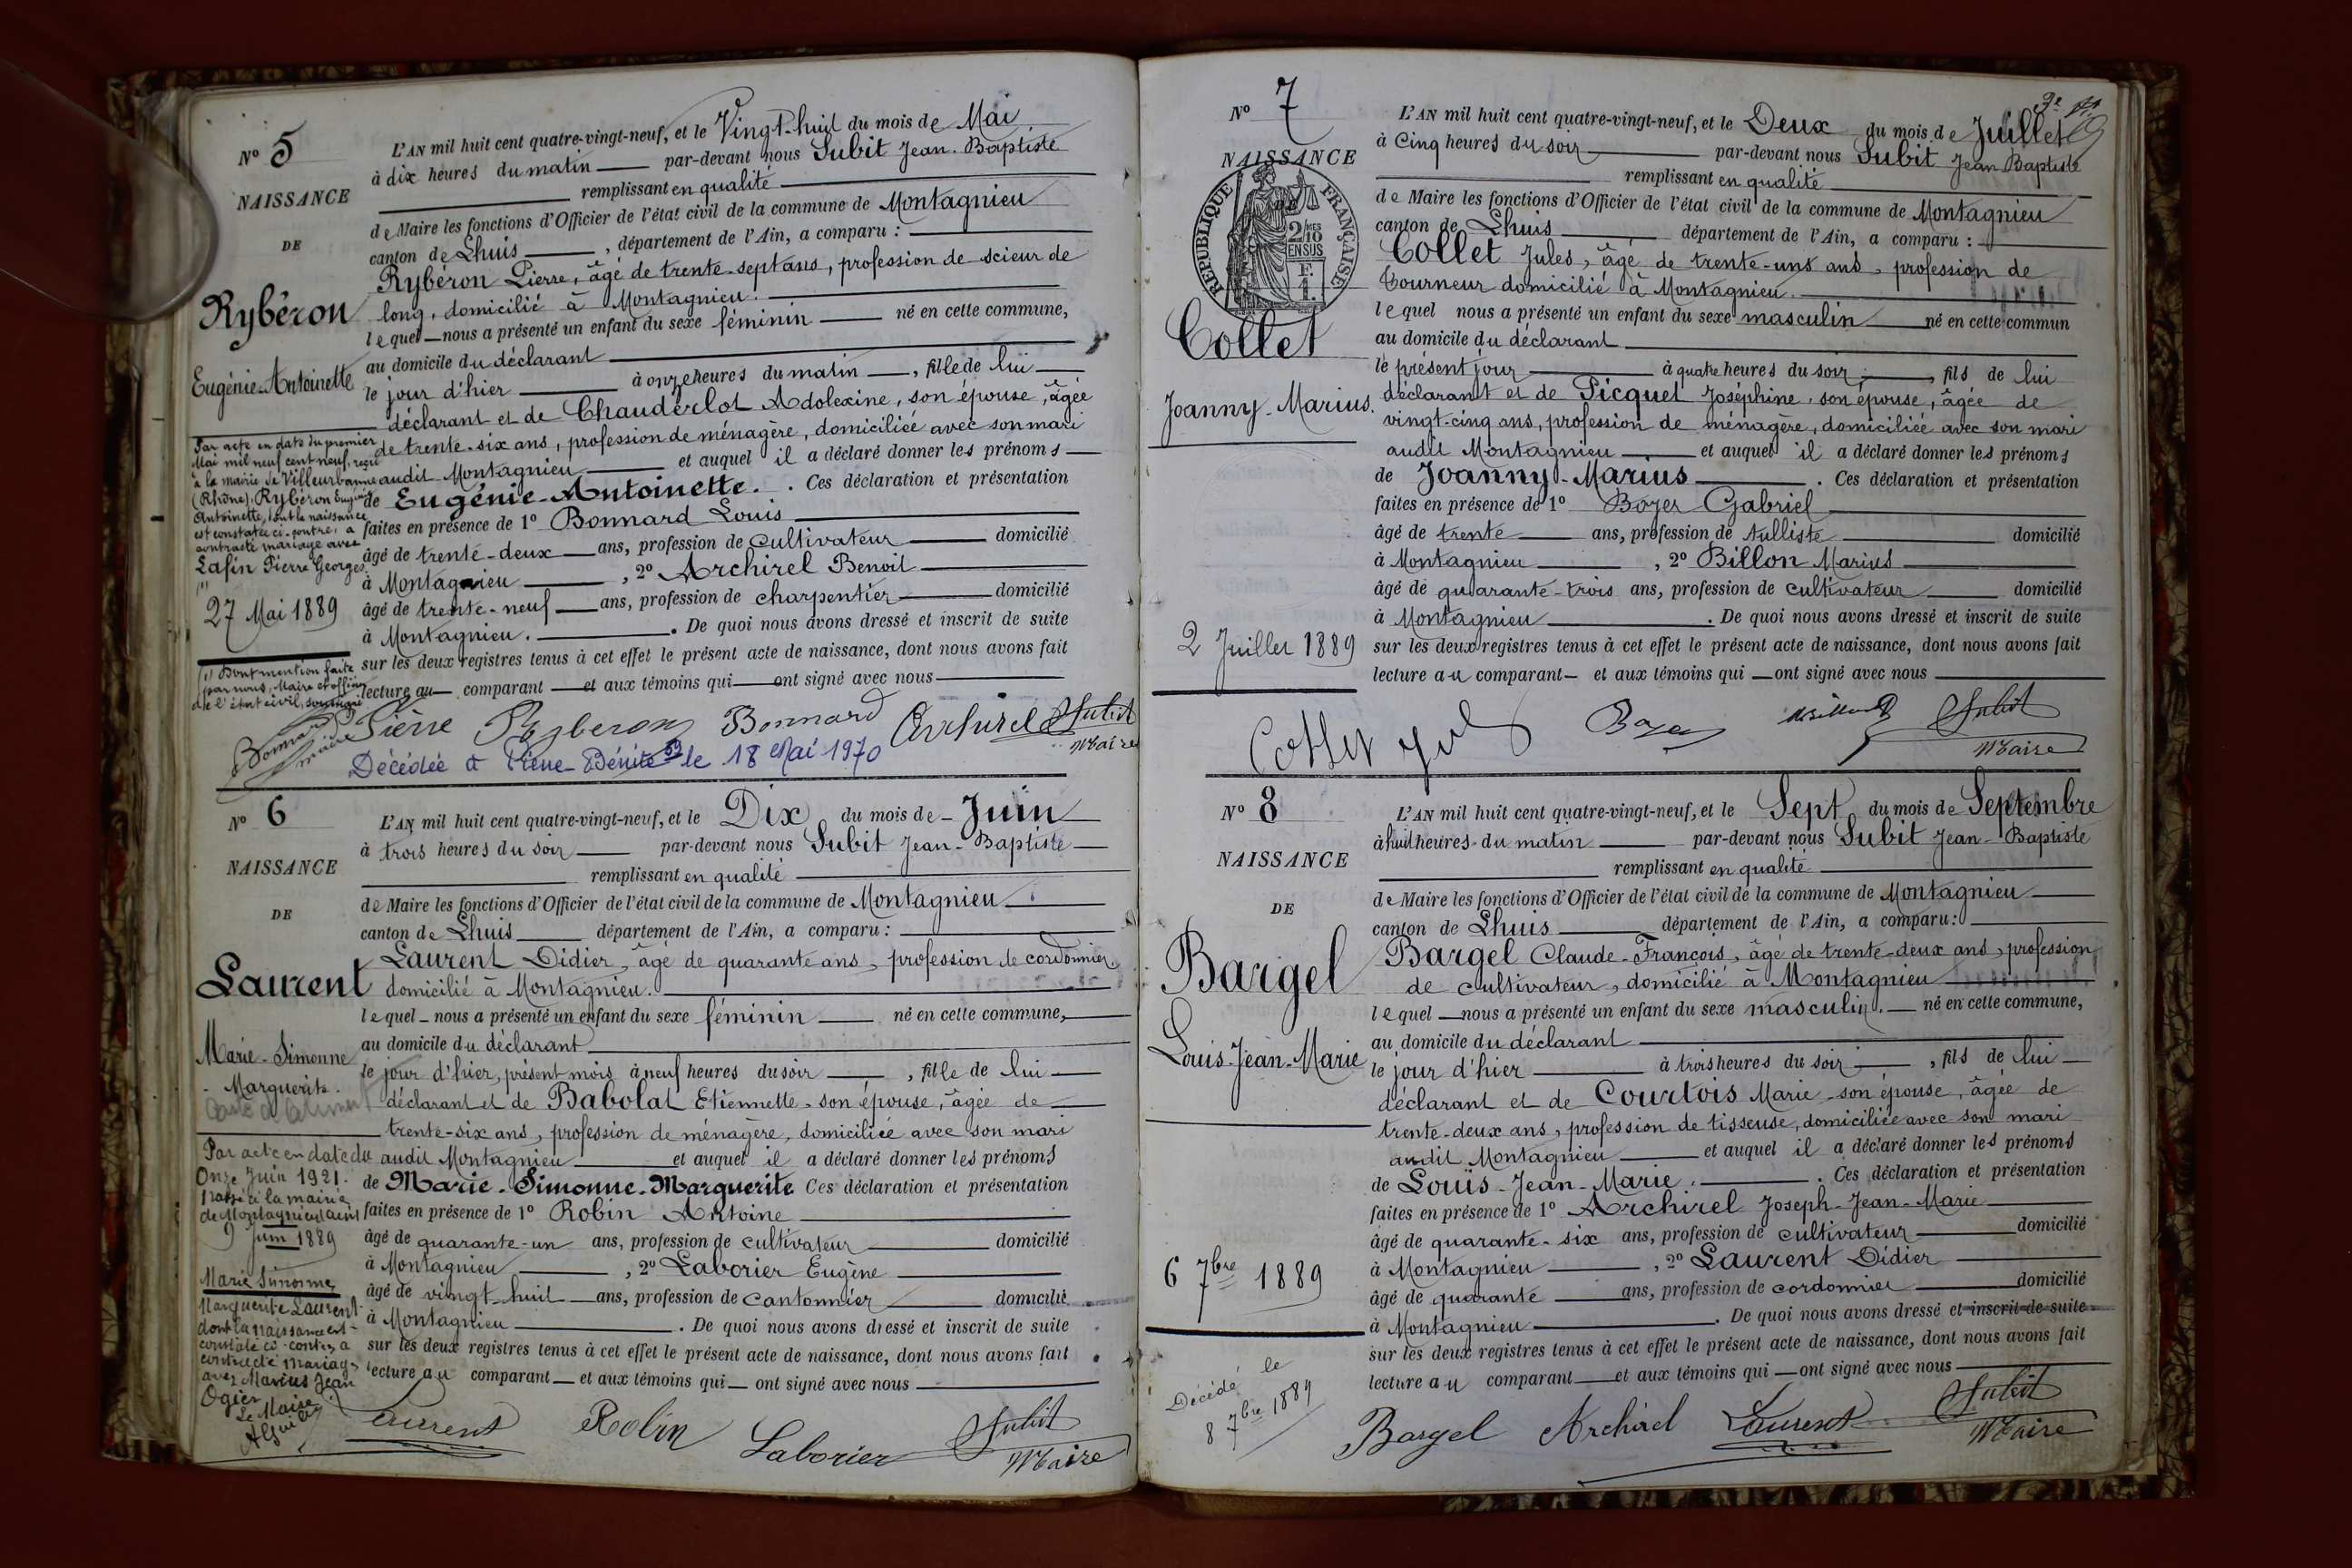 No 5
NAISSANCE
DE
Rybéron
Eugénie-Antoinette
L'AN mil huit cent quatre-vingt-neuf, et le Vingt-huit du mois de Mai
à dix heures du matin par-devant nous Subit Jean-Baptiste
remplissant en qualité
de Maire les fonctions d'Officier de l'état civil de la commune de Montagnieu
canton de Lhuis, département de l'Ain, a comparu :
Rybéron Pierre, âgé de trente-sept ans, profession de scieur de
long, domicilié à Montagnieu.
lequel nous a présenté un enfant du sexe féminin né en cette commune,
au domicile du déclarant
le jour d'hier à onze heures du matin, fille de lui
déclarant et de Chauderlot Adolexine, son épouse, âgée
de trente-six ans, profession de ménagère, domiciliée avec son mari
audit Montagnieu et auquel il a déclaré donner les prénoms
de Eugénie-Antoinette. . Ces déclaration et présentation
faites en présence de 1o Bonnard Louis
âgé de trente-deux ans, profession de cultivateur domicilié
à Montagnieu, 2o Archirel Benoit
âgé de trente-neuf ans, profession de charpentier domicilié
à Montagnieu. . De quoi nous avons dressé et inscrit de suite
sur les deux registres tenus à cet effet le présent acte de naissance, dont nous avons fait
lecture au comparant et aux témoins qui ont signé avec nous
Par acte en date du premier
Mai mil neuf cent neuf, reçu
à la mairie de Villeurbanne
(Rhône), Rybéron Eugénie
Antoinette, dont la naissance
est constatée ci-contre, a
contracté mariage avec
Lafin Pierre Georges.
27 Mai 1889
(1) Dont mention faite
par nous, Maire et officier
de l'état civil, soussigné
Bonnard
maire
Pierre Ryberon Bonnard Archirel Subit
Maire
Décédée à Pierre-Bénite le 18 Mai 1970
No 6
NAISSANCE
DE
Laurent
Marie-Simonne
-Marguerite.
L'AN mil huit cent quatre-vingt-neuf, et le Dix du mois de Juin
à trois heures du soir par-devant nous Subit Jean-Baptiste
remplissant en qualité
de Maire les fonctions d'Officier de l'état civil de la commune de Montagnieu
canton de Lhuis département de l'Ain, a comparu :
Laurent Didier, âgé de quarante ans, profession de cordonnier,
domicilié à Montagnieu.
lequel nous a présenté un enfant du sexe féminin né en cette commune,
au domicile du déclarant
le jour d'hier, présent mois à neuf heures du soir, fille de lui
déclarant et de Babolat Etiennette, son épouse, âgée de
trente-six ans, profession de ménagère, domiciliée avec son mari
audit Montagnieu et auquel il a déclaré donner les prénoms
de Marie-Simonne-Marguerite Ces déclaration et présentation
faites en présence de 1o Robin Antoine
âgé de quarante-un ans, profession de cultivateur domicilié
à Montagnieu, 2o Laborier Eugène
âgé de vingt-huit ans, profession de cantonnier domicilié
à Montagnieu . De quoi nous avons dressé et inscrit de suite
sur les deux registres tenus à cet effet le présent acte de naissance, dont nous avons fait
lecture au comparant et aux témoins qui ont signé avec nous
Par acte en date du
Onze Juin 1921.
passé à la mairie
de Montagnieu (ain)
9 Juin 1889
Marie Simonne
Marguerite Laurent
dont la naissance est
constatée ci-contre, a
contracté mariage
avec Marius Jean
Ogier
Le Maire
Laurent Robin Laborier Subit
Maire
No 7
NAISSANCE
RÉPUBLIQUE FRANÇAISE
2/10 MES
EN SUS
Collet
Joanny-Marius.
L'AN mil huit cent quatre-vingt-neuf, et le Deux du mois de Juillet
à Cinq heures du soir par-devant nous Subit Jean Baptiste
remplissant en qualité
de Maire les fonctions d'Officier de l'état civil de la commune de Montagnieu
canton de Lhuis département de l'Ain, a comparu :
Collet Jules, âgé de trente-uns ans, profession de
tourneur domicilié à Montagnieu.
lequel nous a présenté un enfant du sexe masculin né en cette commun
au domicile du déclarant
le présent jour à quatre heures du soir, fils de lui
déclarant et de Picquet Joséphine, son épouse, âgée de
vingt-cinq ans, profession de ménagère, domiciliée avec son mari
audit Montagnieu et auquel il a déclaré donner les prénoms
de Joanny-Marius . Ces déclaration et présentation
faites en présence de 1o Boyer Gabriel
âgé de trente ans, profession de tulliste domicilié
à Montagnieu, 2o Billon Marius
âgé de quarante-trois ans, profession de cultivateur domicilié
à Montagnieu . De quoi nous avons dressé et inscrit de suite
sur les deux registres tenus à cet effet le présent acte de naissance, dont nous avons fait
lecture au comparant et aux témoins qui ont signé avec nous
2 Juillet 1889
Collet Jules Boyer Billon Subit
Maire
No 8
NAISSANCE
DE
Bargel
Louis-Jean-Marie
L'AN mil huit cent quatre-vingt-neuf, et le Sept du mois de Septembre
à huit heures du matin par-devant nous Subit Jean-Baptiste
remplissant en qualité
de Maire les fonctions d'Officier de l'état civil de la commune de Montagnieu
canton de Lhuis département de l'Ain, a comparu :
Bargel Claude-François, âgé de trente-deux ans, profession
de cultivateur, domicilié à Montagnieu
lequel nous a présenté un enfant du sexe masculin. né en cette commune,
au domicile du déclarant
le jour d'hier à trois heures du soir, fils de lui
déclarant et de Courtois Marie son épouse, âgée de
trente-deux ans, profession de tisseuse, domiciliée avec son mari
audit Montagnieu et auquel il a déclaré donner les prénoms
de Louis-Jean-Marie. . Ces déclaration et présentation
faites en présence de 1o Archirel Joseph-Jean-Marie
âgé de quarante-six ans, profession de cultivateur domicilié
à Montagnieu, 2o Laurent Didier
âgé de quarante ans, profession de cordonnier domicilié
à Montagnieu . De quoi nous avons dressé et inscrit de suite
sur les deux registres tenus à cet effet le présent acte de naissance, dont nous avons fait
lecture au comparant et aux témoins qui ont signé avec nous
6 7bre 1889
Décédé le
8 7bre 1889
Bargel Archirel Laurent Subit
Maire